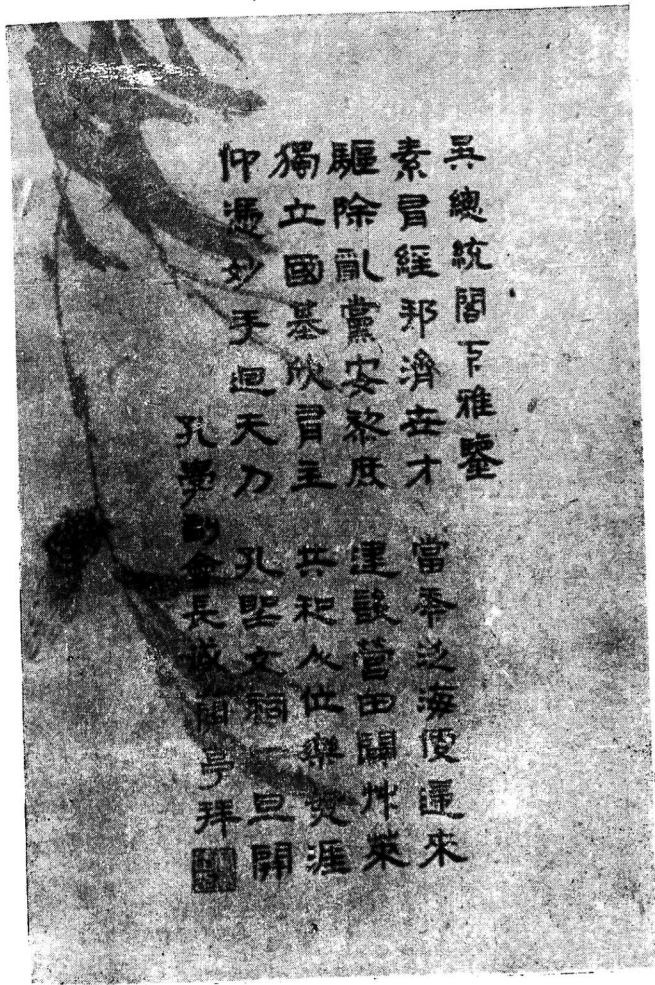 吳總統閣下雅鑒
素有經邦濟世才 當秊泛海便還來
驅除亂黨安黎庶 建設營田闢艸萊
獨立國基欣有主 共和人位樂無涯
仰憑妙手迴天力 孔聖文祠一旦開
孔學副會長蘭亭拜